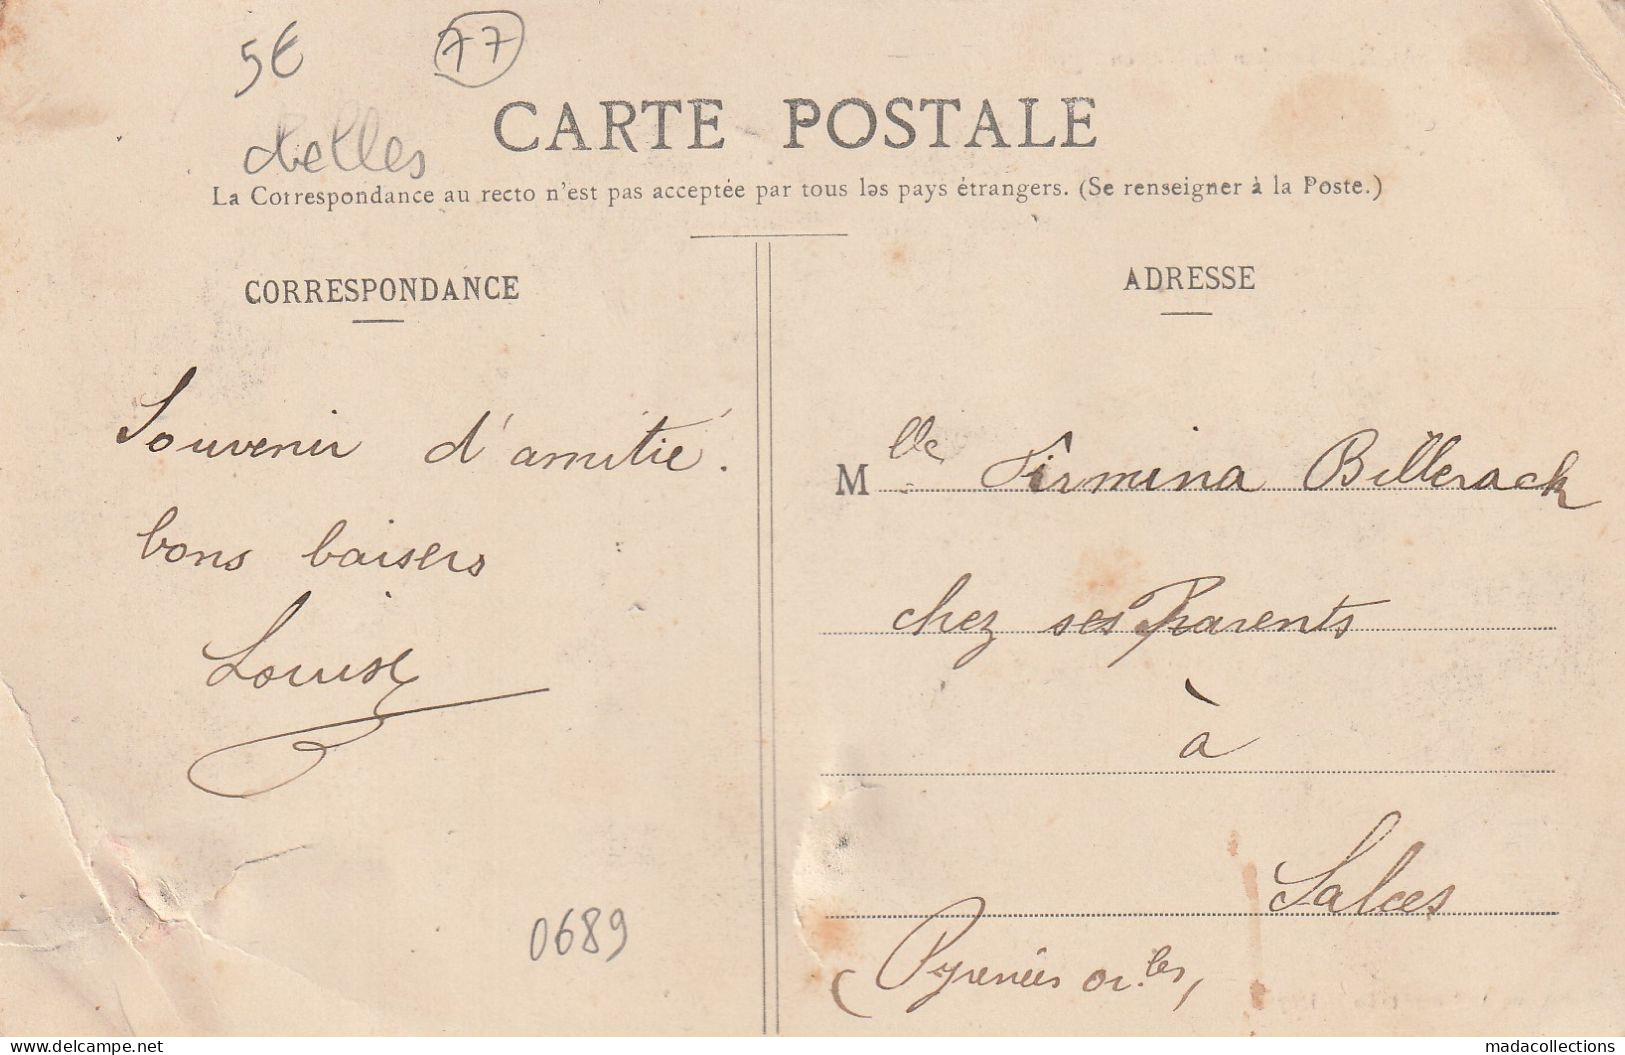 5€
77
chelles
CARTE POSTALE
La Correspondance au recto n'est pas acceptée par tous les pays étrangers. (Se renseigner à la Poste.)
CORRESPONDANCE
Souvenir d'amitié.
bons baisers
Louise
0689
ADRESSE
Mlle Firmina Billerach
chez ses Parents
à
Salces
(Pyrénées or.les)
www.delcampe.net
madacollections